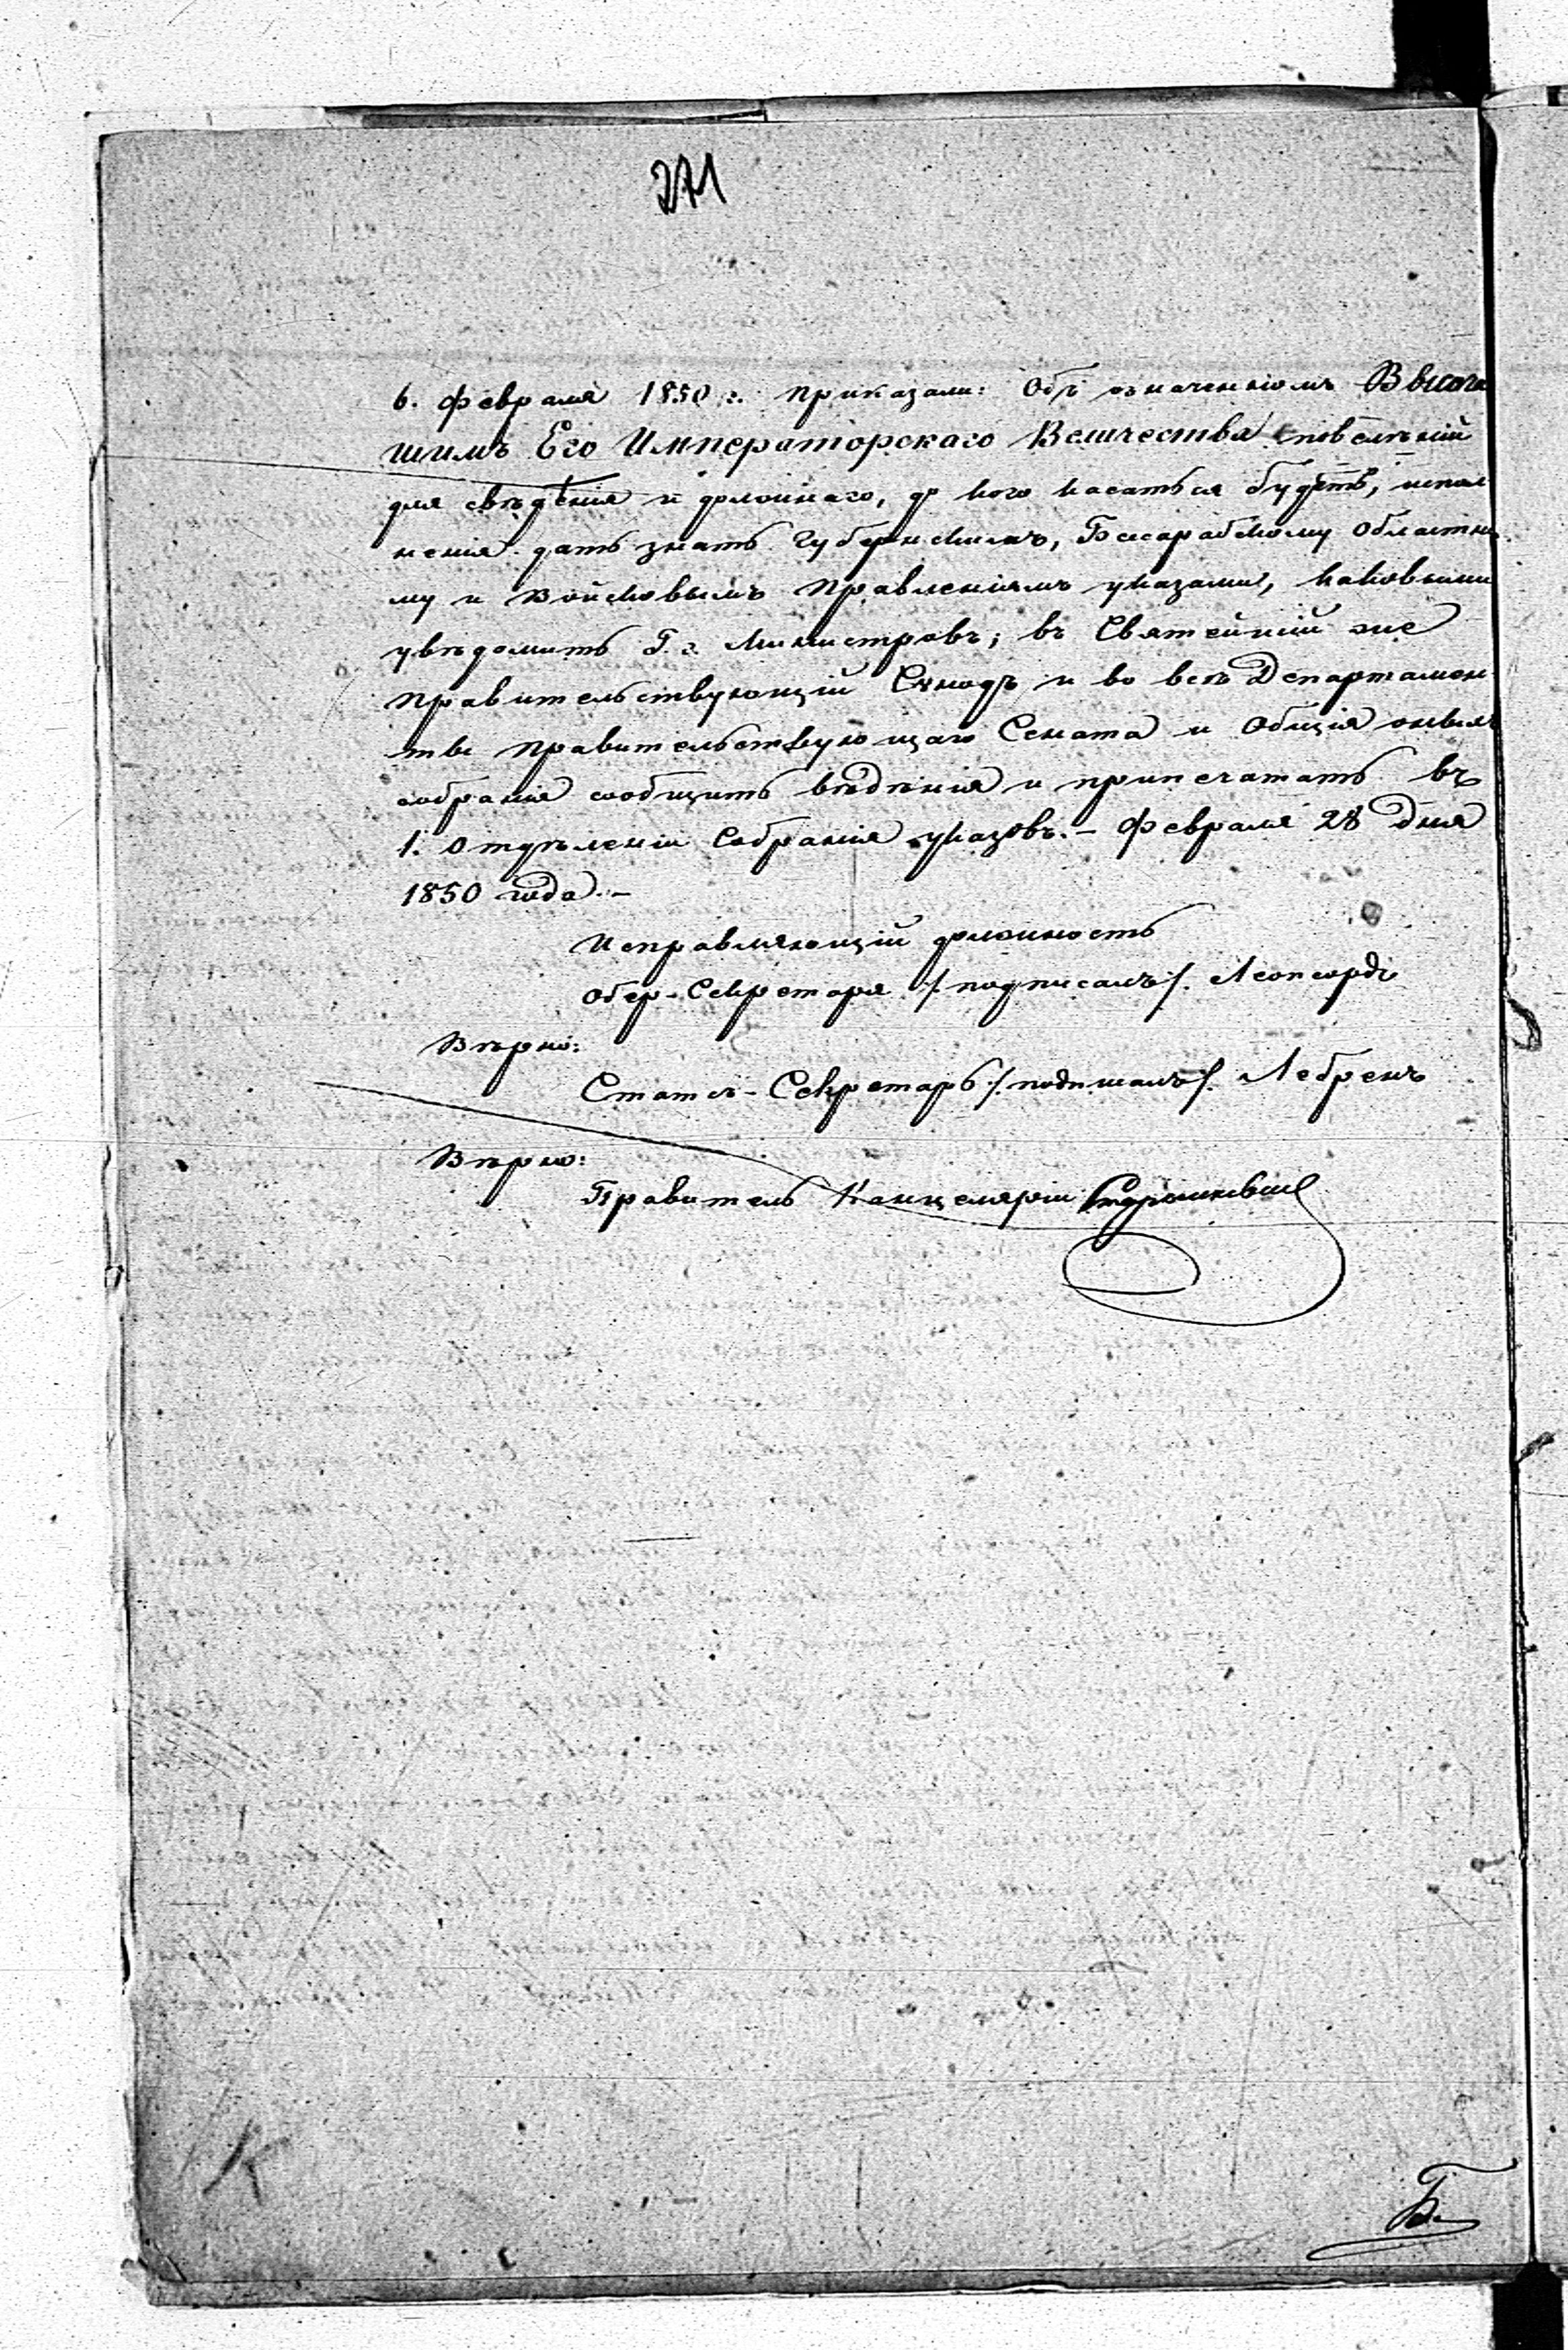 271
6. Февраля 1850 г. Приказали: Объ означенномъ Высочай
шимъ Его Императорскаго Величества повелѣнiи
для свѣдѣнiя и должнаго, до кого касаться будетъ, испол
ненiя дать знать Губернскимъ, Бессарабскому Областно
му и Войсковымъ Правленiямъ указами, каковыми
увѣдомить Г. г. Министровъ; въ Святѣйшiй же
Правительствующiй Сѵнодъ и во всѣ Департамен
ты Правительствующаго Сената и Общiя оныхъ
собранiя сообщить вѣдѣнiя и припечатать въ
1. Отдѣленiи Собранiя указовъ. – Февраля 28 дня
1850 года. –
Исправляющiй должность
Обер-Секретаря /. подписалъ /. Леопардъ
Вѣрно:
Статсъ-Секретарь /. подписалъ /. Лебренъ
Вѣрно:
Правитель Канцелярiи
Б.